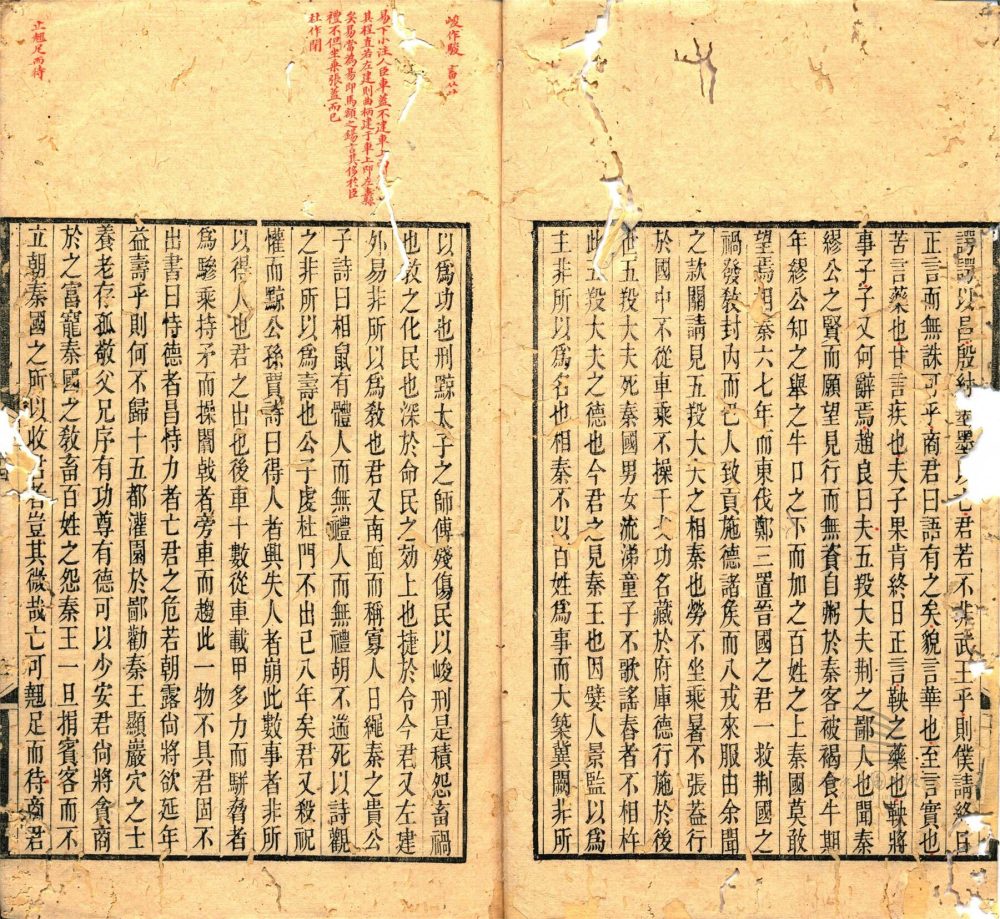 諤諤以昌殷紂墨亡君若不非武王乎則僕請終日
正言而無誅可乎商君曰語有之矣貌言華也至言實也
苦言藥也甘言疾也夫子果肯終日正言鞅之藥也鞅將
事子子又何辭焉趙良曰夫五羖大夫荆之鄙人也聞秦
繆公之賢而願望見行而無資自粥於秦客被褐食牛期
年繆公知之舉之牛口之下而加之百姓之上秦國莫敢
望焉相秦六七年而東伐鄭三置晉國之君一救荆國之
禍發敎封內而巴人致貢施德諸矦而八戎來服由余聞
之款關請見五羖大夫之相秦也勞不坐乘暑不張蓋行
於國中不從車乘不操干戈功名藏於府庫德行施於後
世五羖大夫死秦國男女流涕童子不歌謠舂者不相杵
此五羖大夫之德也今君之見秦王也因嬖人景監以爲
主非所以爲名也相秦不以百姓爲事而大築冀闕非所
峻作駿 畜菑
易下小注人臣車蓋不建車上
其程直若左建則曲柄建于車上即左纛縣
矣易當為昜即馬額之錫言其侈於臣
禮不但坐乘張蓋而已
杜作閉
止翹足而待
以爲功也刑黥太子之師傅殘傷民以峻刑是積怨畜禍
也敎之化民也深於命民之効上也捷於令今君又左建
外易非所以爲敎也君又南面而稱寡人日繩秦之貴公
子詩曰相鼠有體人而無禮人而無禮胡不遄死以詩觀
之非所以爲壽也公子虔杜門不出已八年矣君又殺祝
懽而黥公孫賈詩曰得人者興失人者崩此數事者非所
以得人也君之出也後車十數從車載甲多力而駢脅者
爲驂乘持矛而操闟戟者旁車而趨此一物不具君固不
出書曰恃德者昌恃力者亡君之危若朝露尙將欲延年
益壽乎則何不歸十五都灌園於鄙勸秦王顯巖穴之士
養老存孤敬父兄序有功尊有德可以少安君尙將貪商
於之富寵秦國之敎畜百姓之怨秦王一旦捐賓客而不
立朝秦國之所以收君者豈其微哉亡可翹足而待商君